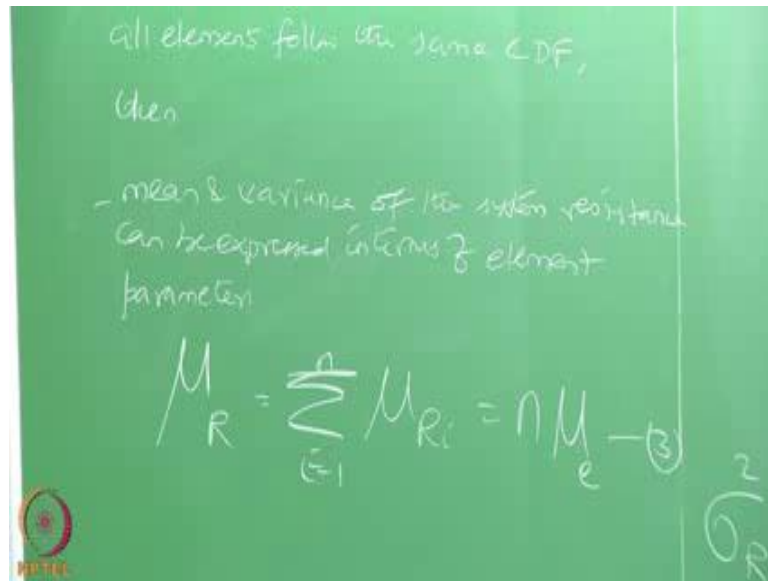 all elements follow the same CDF,
then
- mean & variance of the system resistance
can be expressed in terms of element
parameters
μ_R = Σ_{i=1}^{n} μ_{Ri} = n μ_e — (3)
σ_R^2
NPTEL